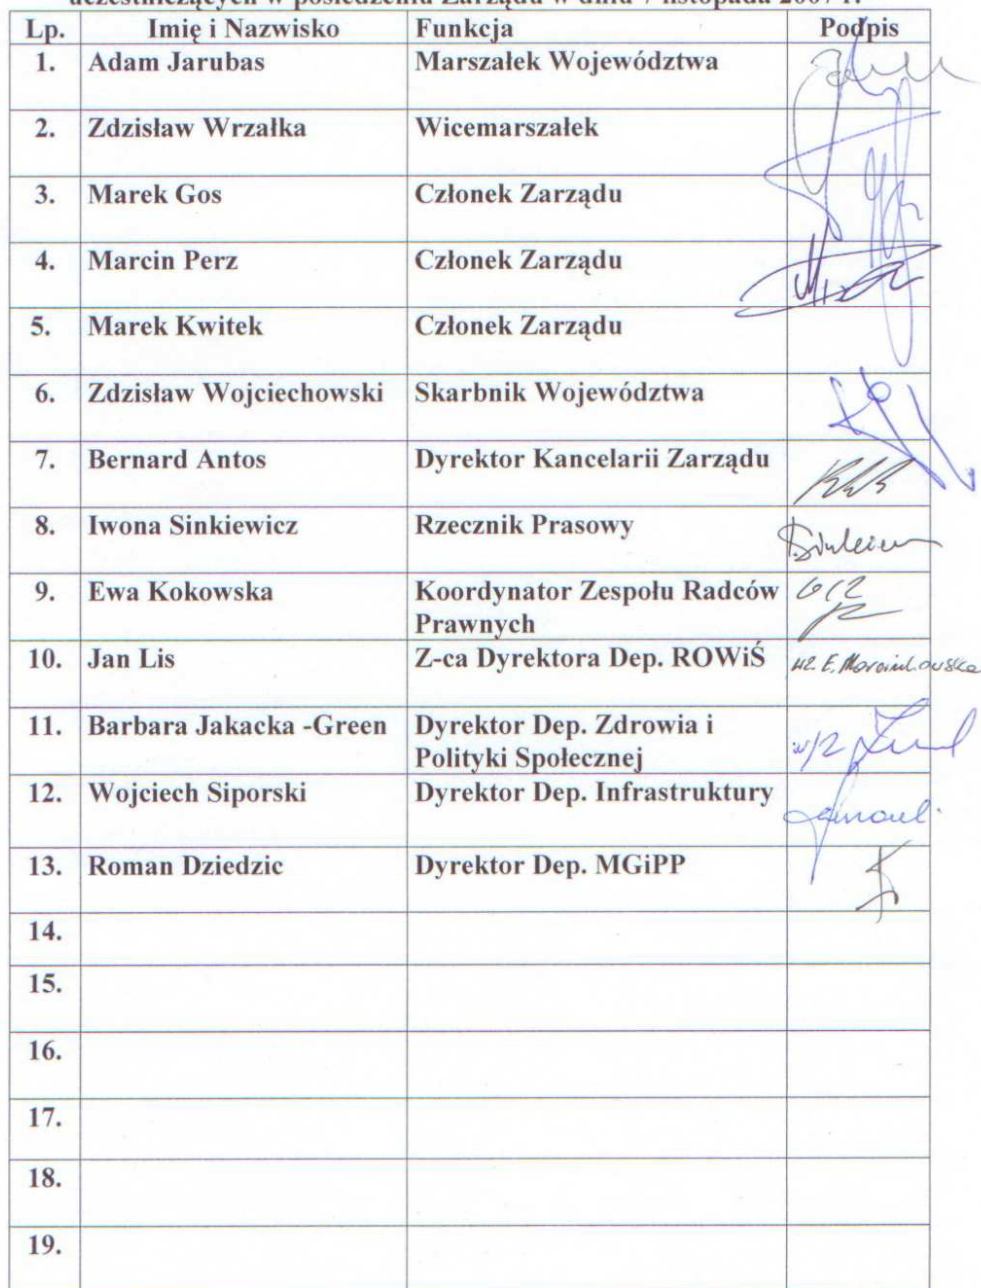 uczestniczących w posiedzeniu Zarządu w dniu 7 listopada 2007 r.
Lp. Imię i Nazwisko Funkcja Podpis
1. Adam Jarubas Marszałek Województwa
2. Zdzisław Wrzałka Wicemarszałek
3. Marek Gos Członek Zarządu
4. Marcin Perz Członek Zarządu
5. Marek Kwitek Członek Zarządu
6. Zdzisław Wojciechowski Skarbnik Województwa
7. Bernard Antos Dyrektor Kancelarii Zarządu
8. Iwona Sinkiewicz Rzecznik Prasowy
9. Ewa Kokowska Koordynator Zespołu Radców
Prawnych
10. Jan Lis Z-ca Dyrektora Dep. ROWiŚ
11. Barbara Jakacka -Green Dyrektor Dep. Zdrowia i
Polityki Społecznej w/z
12. Wojciech Siporski Dyrektor Dep. Infrastruktury
13. Roman Dziedzic Dyrektor Dep. MGiPP
14.
15.
16.
17.
18.
19.